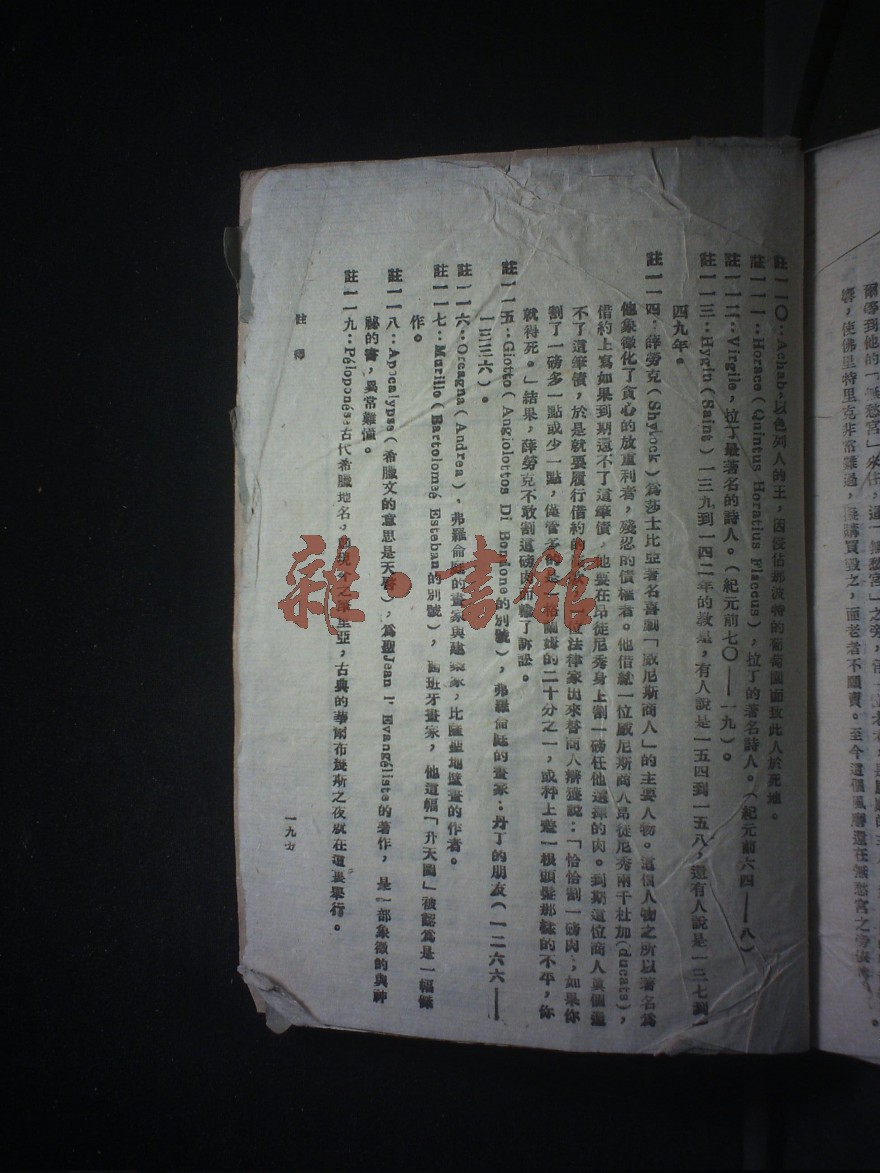 註一一〇：Achab，以色列人的王，因侵佔那波特的葡萄園而致此人於死地。
註一一一：Horace（Quintus Horatius Flaccus），拉丁的著名詩人。（紀元前六四——八）
註一一二：Virgile，拉丁最著名的詩人。（紀元前七〇——一九）。
註一一三：Hygin（Saint）一三九到一四二年的教皇，有人說是一五四到一五八，還有人說是一三七到一
四九年。
註一一四：薛勞克（Shylock）爲莎士比亞著名喜劇「威尼斯商人」的主要人物。這個人物之所以著名爲
他象徵化了貪心的放重利者，殘忍的債權者。他借給一位威尼斯商人昂徒尼秀兩千杜加(ducats)，
借約上寫如果到期還不了這筆債，他要在昂徒尼秀身上割一磅任他選擇的肉。到期這位商人眞個還
不了這筆債，於是就要履行借約的 位法律家出來替商人辯護說：「恰恰割一磅肉；如果你
割了一磅多一點或少一點，儘管多的是一 的二十分之一，或秤上差一根頭髮那樣的不平，你
就得死。」結果，薛勞克不敢割這磅肉而輸了訴訟。
註一一五：Giotto（Angiolottos Di Bondone的別號），弗羅侖庭的畫家：丹丁的朋友（一二六六——
一三三六）。
註一一六：Orcagna（Andrea），弗羅侖庭的畫家與建築家，比薩聖地壁畫的作者。
註一一七：Murillo（Bartolomeé Esteban的別號），西班牙畫家，他這幅「升天圖」被認爲是一幅傑
作。
註一一八：Apocalypse（希臘文的意思是天啓），爲聖Jean l' Evangéliste的著作，是一部象徵的與神
祕的書，異常難懂。
註一一九：Péloponése古代希臘地名， 里亞，古典的華爾布幾斯之夜就在這裏舉行。
註 釋
一九五
爾等到他的「無愁宮」
，使佛里特里克非常難過，要購買毀之，而老者不願賣。至今這個風磨還在無愁宮之旁